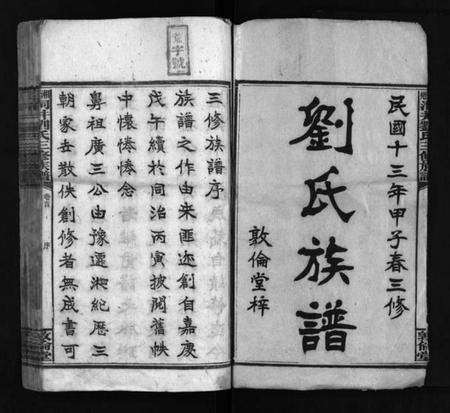 民國十三年甲子春三修
劉氏族譜
敦倫堂梓
字號
三修族譜序
族譜之作由來匪迩創自嘉慶
戊午續於同治丙寅披閱舊帙
中懷惓惓念
鼻祖廣三公由豫遷湘紀歷三
朝家乘散佚創修者無成書可
卷首
序
敦倫堂